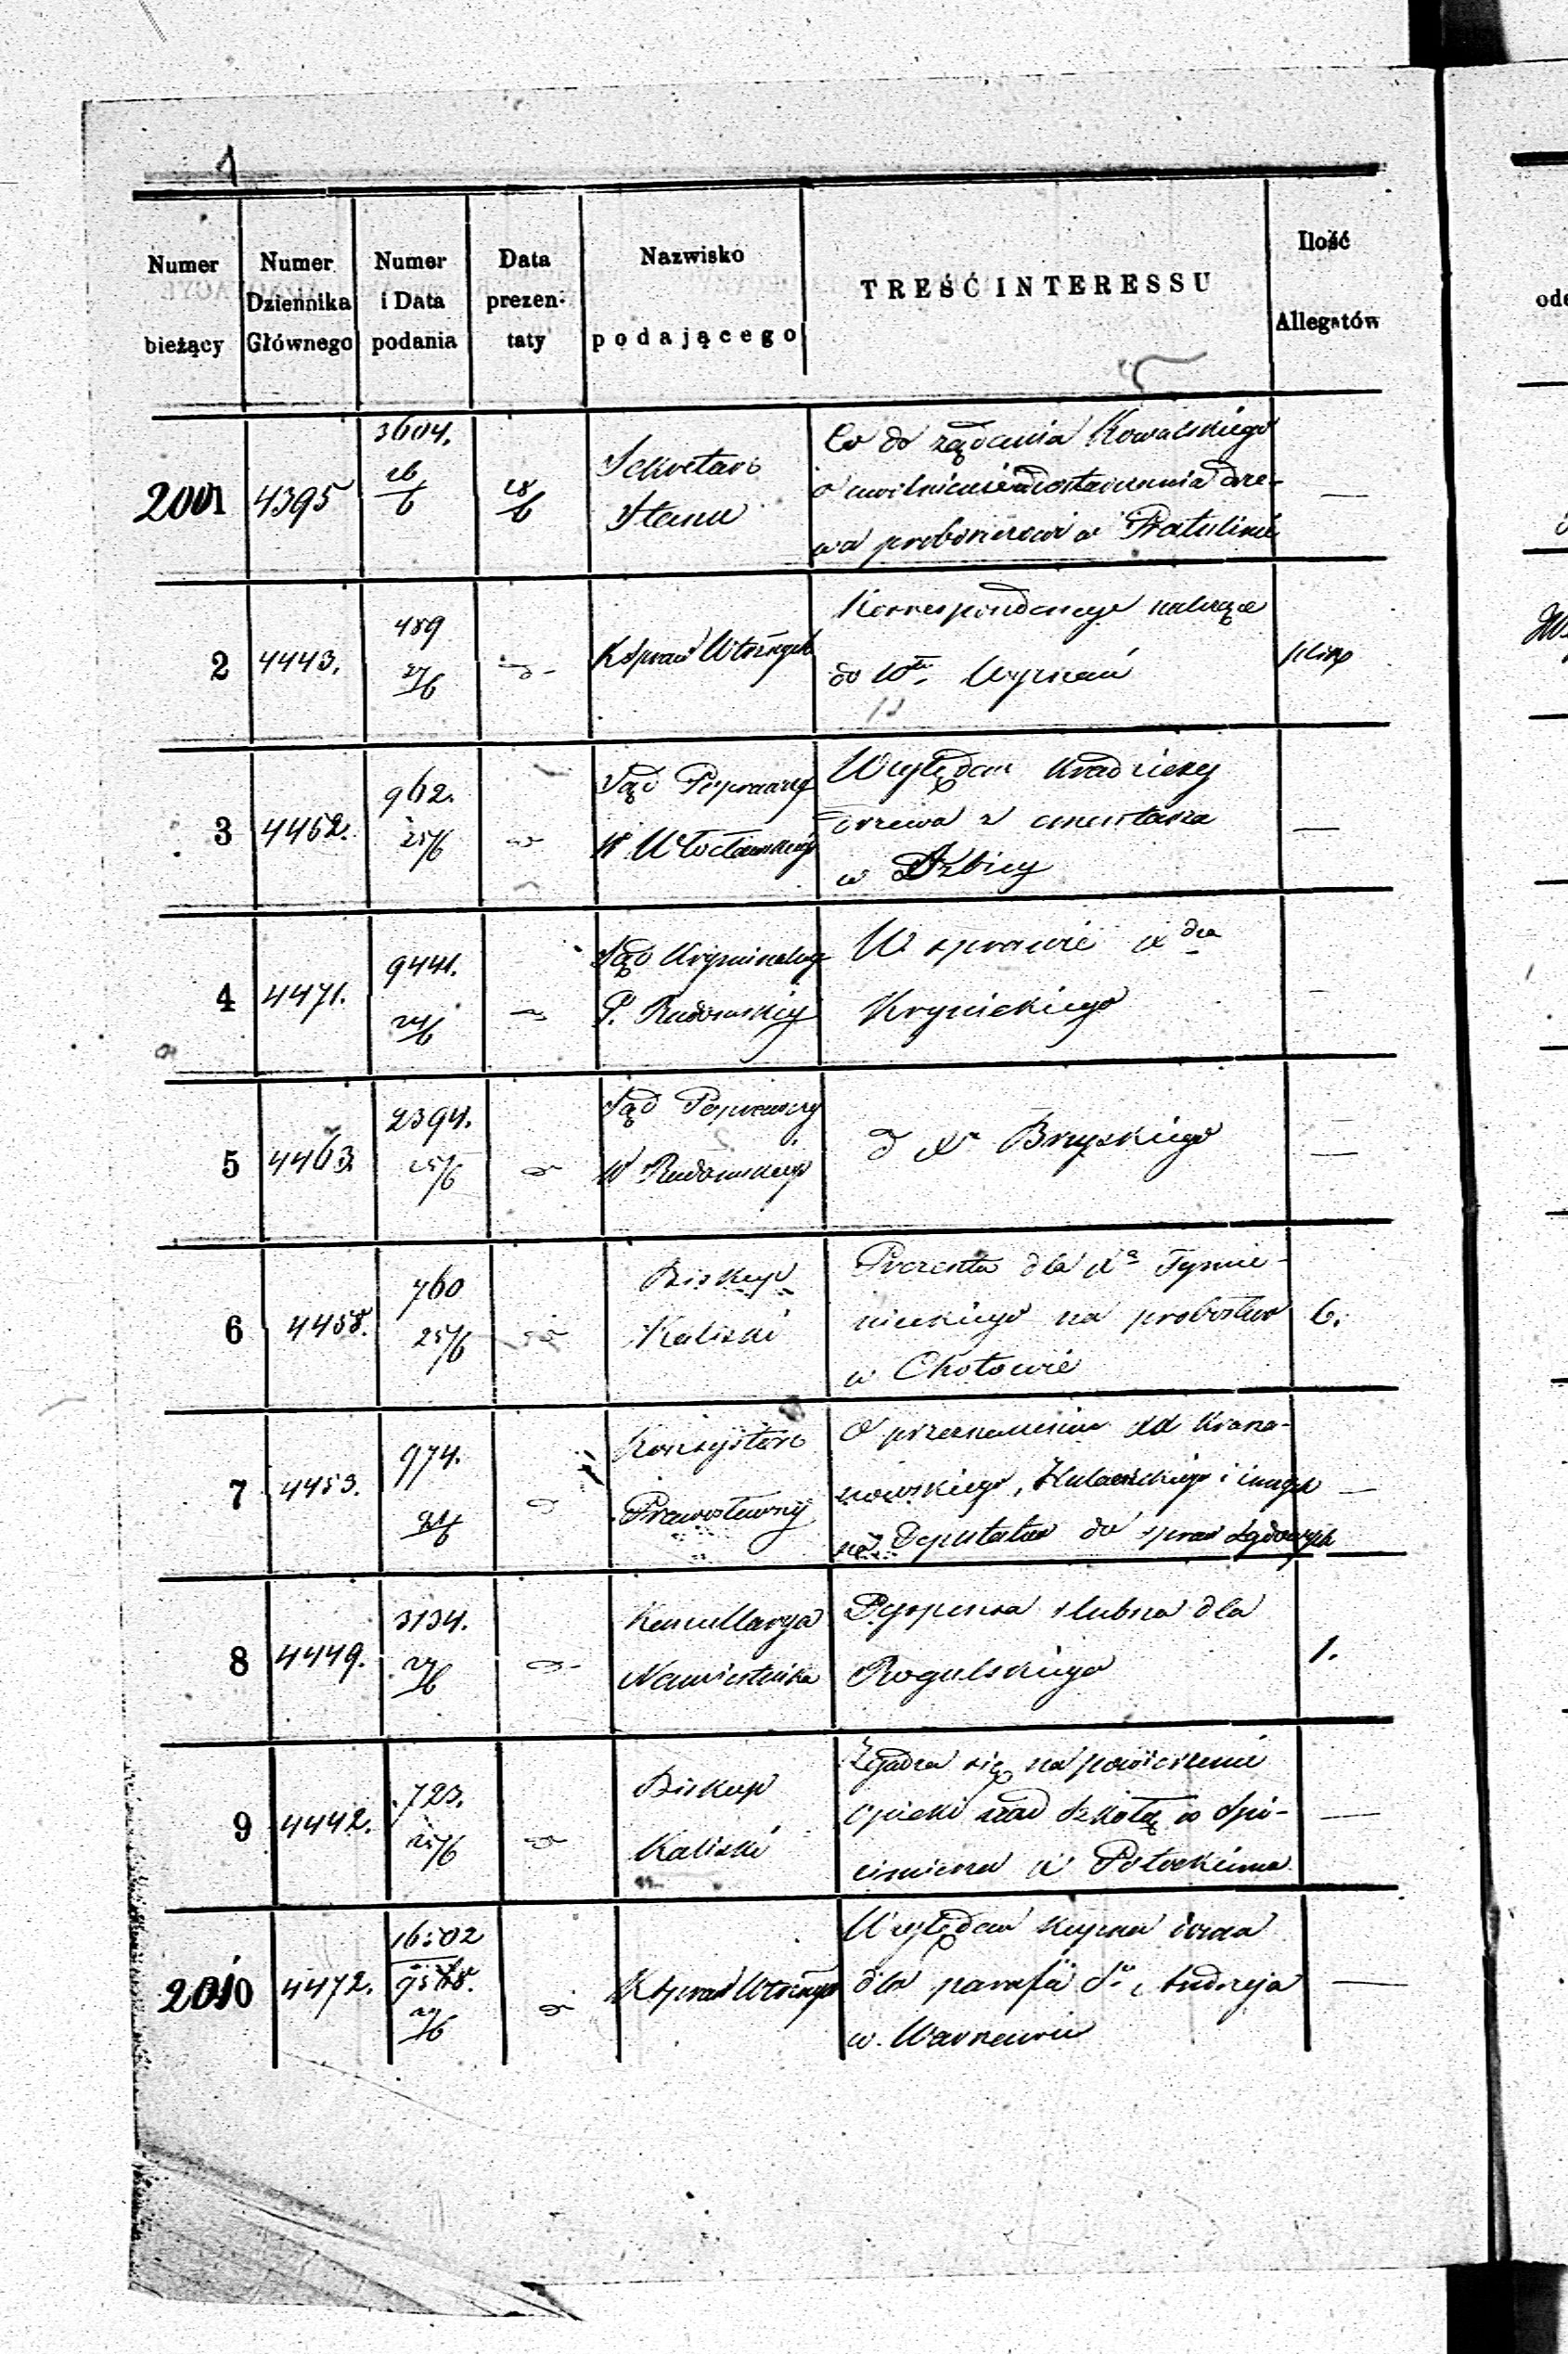 1
Numer bieżący
Numer Dziennika Głównego
Numer i Data podania
Data prezen- taty
Nazwisko podającego
TREŚĆ INTERESSU
Ilość Allegatów
2001 4395 3604. 26/6 28/6
Sekretarz
Stanu
Co do żądania Kowalskiego
o uwolnienie od dostarczania drze-
wa proboszczowi w Pratulinie
—
2 4443. 489 27/6
K Spraw Wewnętrznych
Korrespondencye należące
do Wyznań
plika
3 4462. 962. 25/6
Sąd Poprawczy
W Włocławskiego
Względem kradzieży
drzewa z cmentarza
w Izbicy
—
4 4471. 9441. 27/6
Sąd Kryminalny
P. Radomskiej
W sprawie xdza
Krynickiego
5 4463. 2394. 25/6
Sąd Poprawczy
W Radomskiego
d X Bryskiego
—
6 4458. 760 25/6
Biskup
Kaliski
Prezenta dla Xa Tymie-
nieckiego na probostwo
w Chotowie
6.
7 4453. 974.
Konsystorz
Prawosławny
O przeznaczeniu XX
i innych
na Deputatów do spraw sądowych
—
8 4449. 3134. 27/6
Kancellarya
Namiestnika
Dyspensa ślubna dla
Rogulskiego
1.
9 4442. 723. 25/6
Biskup
Kaliski
Zgadza się na powierzenie
opieki nad Szkołą w Spi-
cimierzu X Potockiemu
—
2010 4472. 16502 27/6
K Spraw Wewnętrznych
Względem kupna
dla parafii Sgo Andrzeja
w Warszawie
—
ode